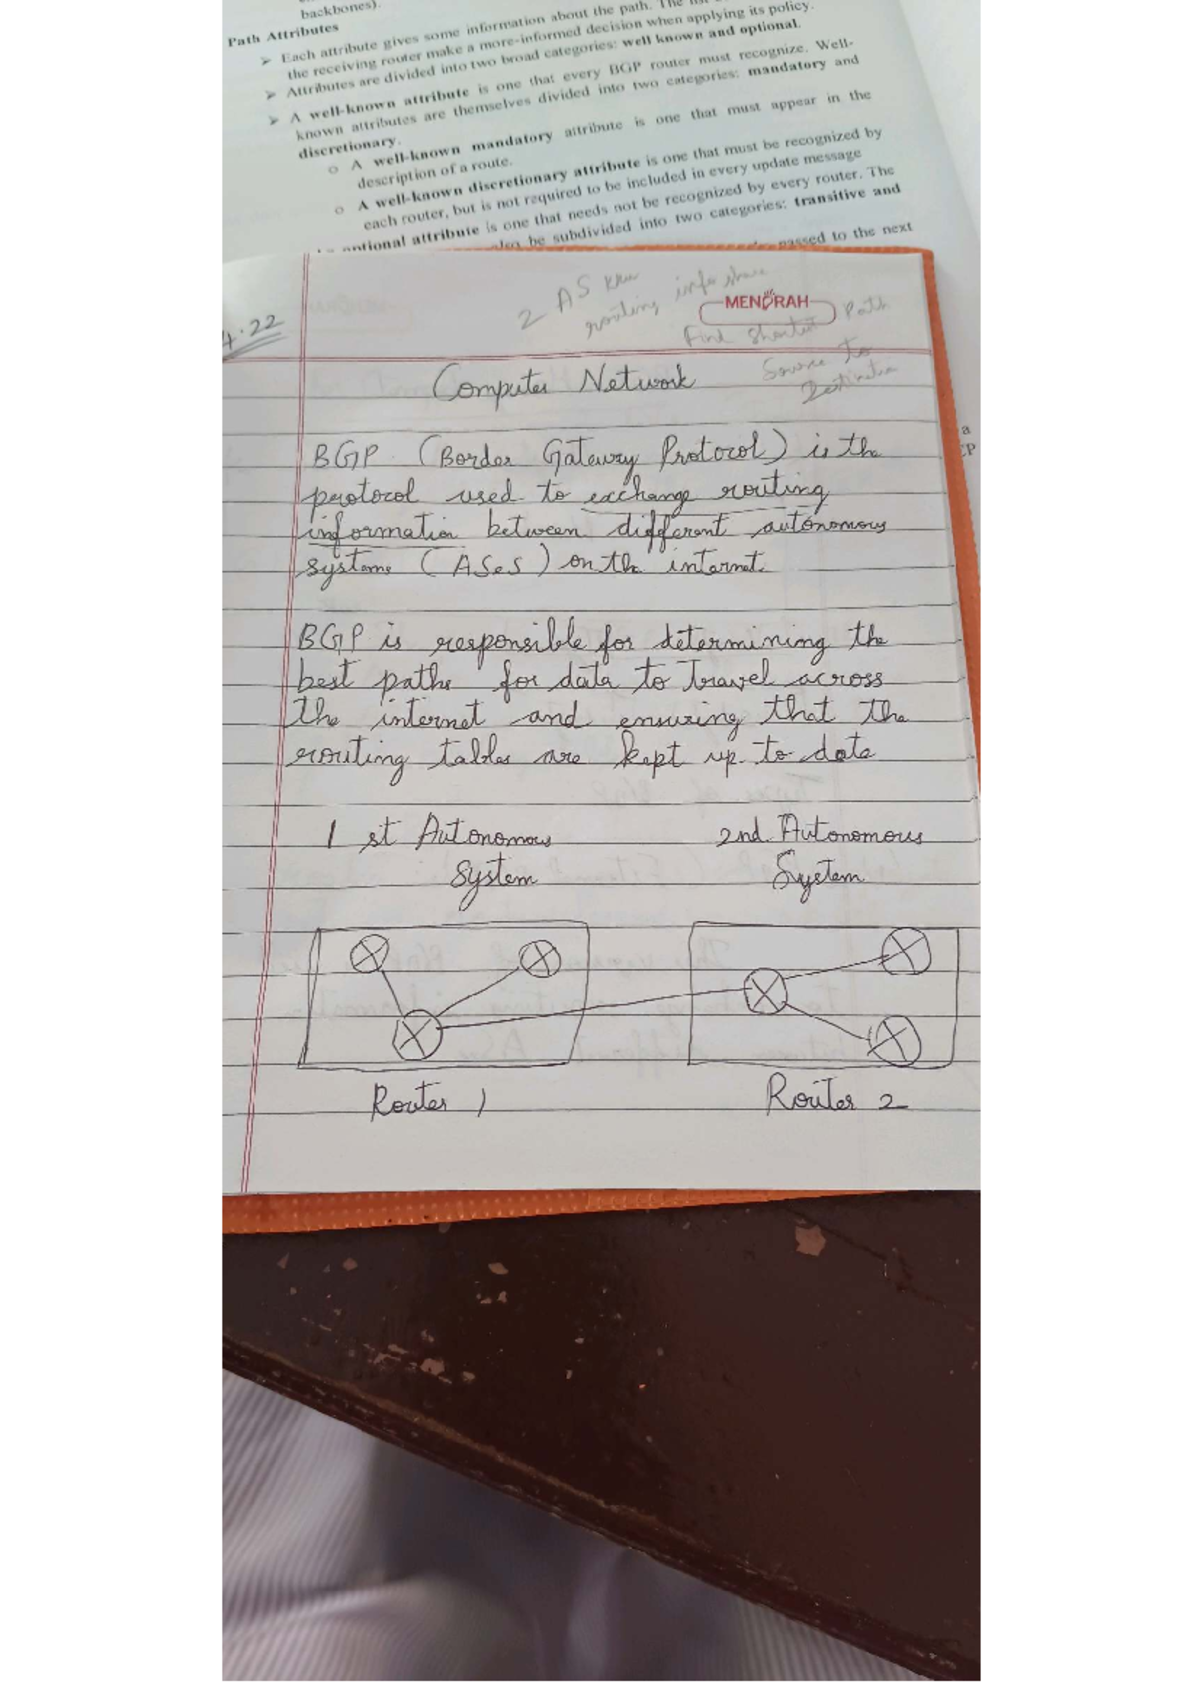 backbones).
Path Attributes
➤ Each attribute gives some information about the path. The
the receiving router make a more-informed decision when applying its policy.
➤ Attributes are divided into two broad categories: well known and optional.
➤ A well-known attribute is one that every BGP router must recognize. Well-
known attributes are themselves divided into two categories: mandatory and
discretionary.
o A well-known mandatory attribute is one that must appear in the
description of a route.
o A well-known discretionary attribute is one that must be recognized by
each router, but is not required to be included in every update message
optional attribute is one that needs not be recognized by every router. The
be subdivided into two categories: transitive and
passed to the next
2 AS
routing info share
MENORAH
Find Shortest Path
Source to
Destination
4.22
Computer Network
BGP (Border Gateway Protocol) is the
protocol used to exchange routing
information between different autonomous
systems (ASes) on the internet.
BGP is responsible for determining the
best paths for data to travel across
the internet and ensuring that the
routing tables are kept up to date
1 st Autonomous
System
2nd Autonomous
System
Router 1
Router 2